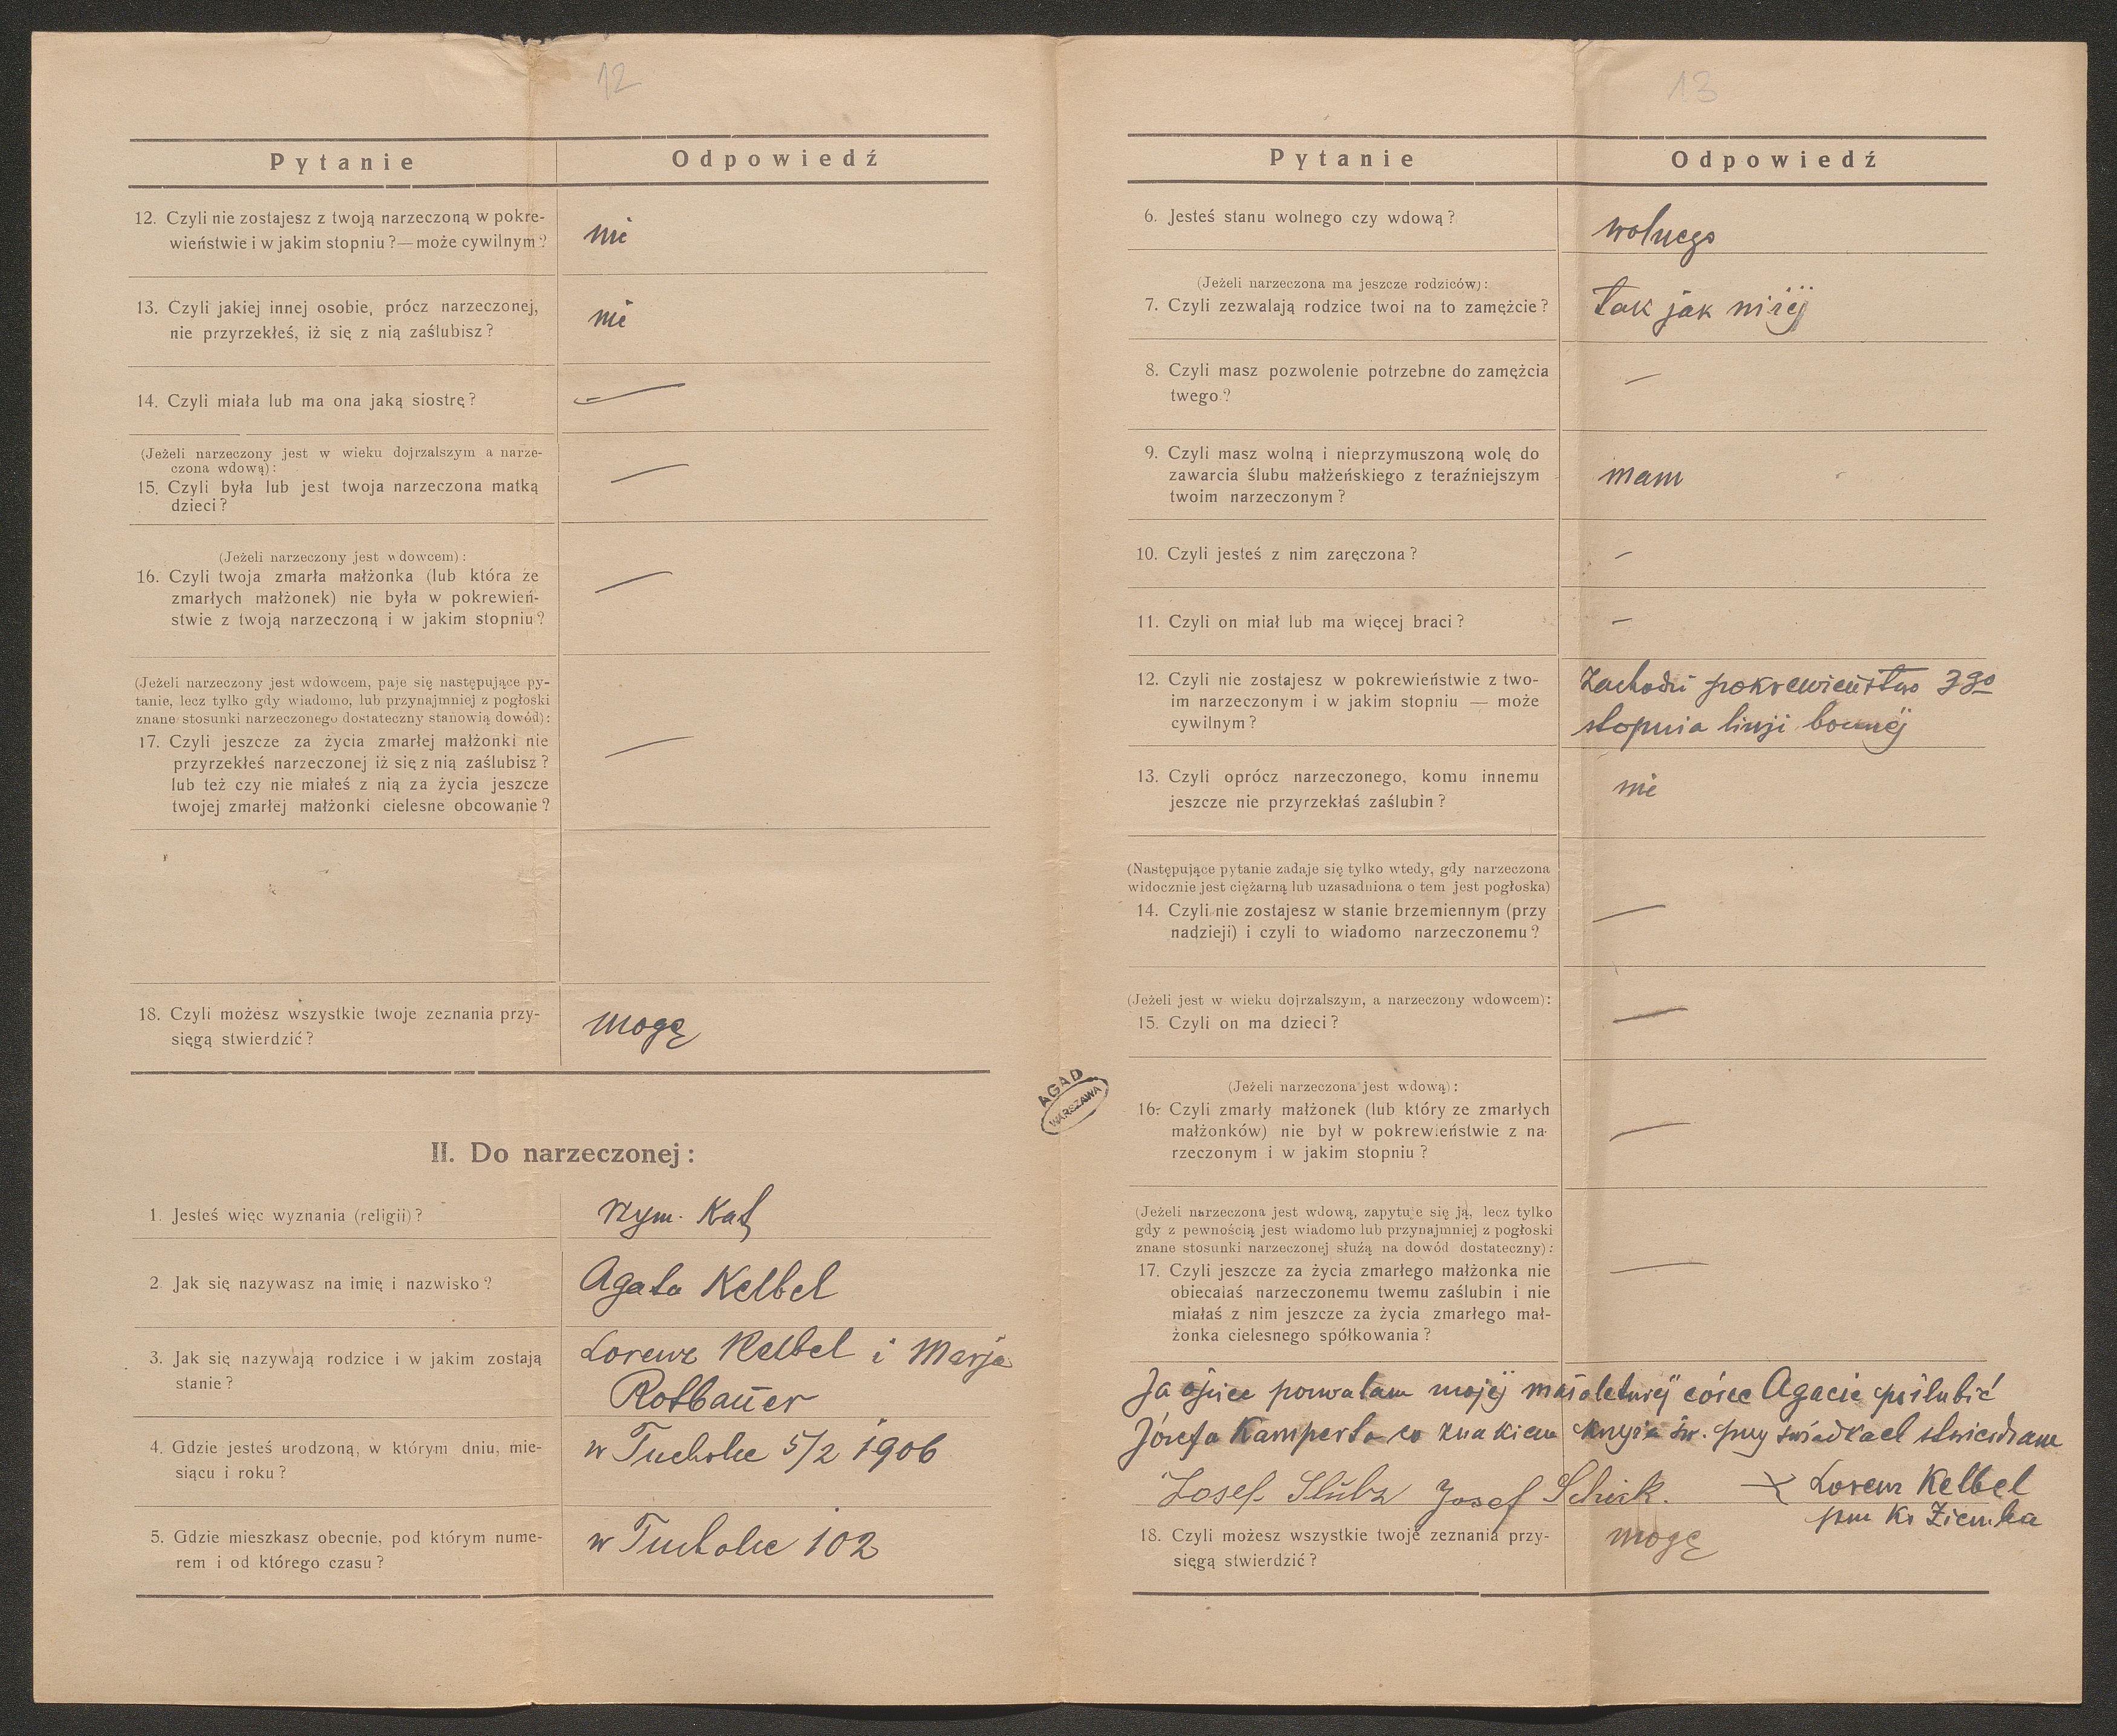 12
Pytanie
Odpowiedź
12. Czyli nie zostajesz z twoją narzeczoną w pokre-
wieństwie i w jakim stopniu? — może cywilnym?
nie
13. Czyli jakiej innej osobie, prócz narzeczonej,
nie przyrzekłeś, iż się z nią zaślubisz?
nie
14. Czyli miała lub ma ona jaką siostrę?
—
(Jeżeli narzeczony jest w wieku dojrzalszym a narze-
czona wdową):
15. Czyli była lub jest twoja narzeczona matką
dzieci?
—
(Jeżeli narzeczony jest wdowcem):
16. Czyli twoja zmarła małżonka (lub która ze
zmarłych małżonek) nie była w pokrewień-
stwie z twoją narzeczoną i w jakim stopniu?
—
(Jeżeli narzeczony jest wdowcem, paje się następujące py-
tanie, lecz tylko gdy wiadomo, lub przynajmniej z pogłoski
znane stosunki narzeczonego dostateczny stanowią dowód):
17. Czyli jeszcze za życia zmarłej małżonki nie
przyrzekłeś narzeczonej iż się z nią zaślubisz?
lub też czy nie miałeś z nią za życia jeszcze
twojej zmarłej małżonki cielesne obcowanie?
—
18. Czyli możesz wszystkie twoje zeznania przy-
sięgą stwierdzić?
mogę
II. Do narzeczonej:
1. Jesteś więc wyznania (religii)?
rzym. Kat
2. Jak się nazywasz na imię i nazwisko?
Agata Kelbel
3. Jak się nazywają rodzice i w jakim zostają
stanie?
Lorenz Kelbel i Marja
Rotbauer
4. Gdzie jesteś urodzoną, w którym dniu, mie-
siącu i roku?
w Tucholce 5/2 1906
5. Gdzie mieszkasz obecnie, pod którym nume-
rem i od którego czasu?
w Tucholce 102
AGAD
WARSZAWA
13
Pytanie
Odpowiedź
6. Jesteś stanu wolnego czy wdową?
wolnego
(Jeżeli narzeczona ma jeszcze rodziców):
7. Czyli zezwalają rodzice twoi na to zamężcie?
tak jak niżej
8. Czyli masz pozwolenie potrzebne do zamężcia
twego?
—
9. Czyli masz wolną i nieprzymuszoną wolę do
zawarcia ślubu małżeńskiego z teraźniejszym
twoim narzeczonym?
mam
10. Czyli jesteś z nim zaręczona?
—
11. Czyli on miał lub ma więcej braci?
—
12. Czyli nie zostajesz w pokrewieństwie z two-
im narzeczonym i w jakim stopniu — może
cywilnym?
Zachodzi pokrewieństwo 3go
stopnia linji bocznej
13. Czyli oprócz narzeczonego, komu innemu
jeszcze nie przyrzekłaś zaślubin?
nie
(Następujące pytanie zadaje się tylko wtedy, gdy narzeczona
widocznie jest ciężarną lub uzasadniona o tem jest pogłoska)
14. Czyli nie zostajesz w stanie brzemiennym (przy
nadzieji) i czyli to wiadomo narzeczonemu?
—
(Jeżeli jest w wieku dojrzalszym, a narzeczony wdowcem):
15. Czyli on ma dzieci?
—
(Jeżeli narzeczona jest wdową):
16. Czyli zmarły małżonek (lub który ze zmarłych
małżonków) nie był w pokrewieństwie z na-
rzeczonym i w jakim stopniu?
—
(Jeżeli narzeczona jest wdową, zapytuje się ją, lecz tylko
gdy z pewnością jest wiadomo lub przynajmniej z pogłoski
znane stosunki narzeczonej służą na dowód dostateczny):
17. Czyli jeszcze za życia zmarłego małżonka nie
obiecałaś narzeczonemu twemu zaślubin i nie
miałaś z nim jeszcze za życia zmarłego mał-
żonka cielesnego spółkowania?
—
Ja ojciec pozwalam mojej małoletniej córce Agacie poślubić
Józefa Kamperta co znakiem krzyża św. przy świadkach stwierdzam
Josef Josef Schick. X Lorenz Kelbel
Ks Ziemba
18. Czyli możesz wszystkie twoje zeznania przy-
sięgą stwierdzić?
mogę